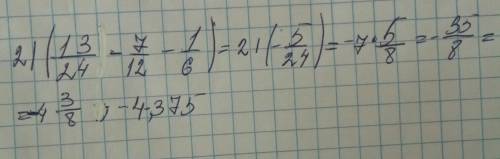 21(13/24 - 7/12 - 1/6) = 21(-5/24) = -7·5/8 = -35/8 =
= -4 3/8 ; -4,375